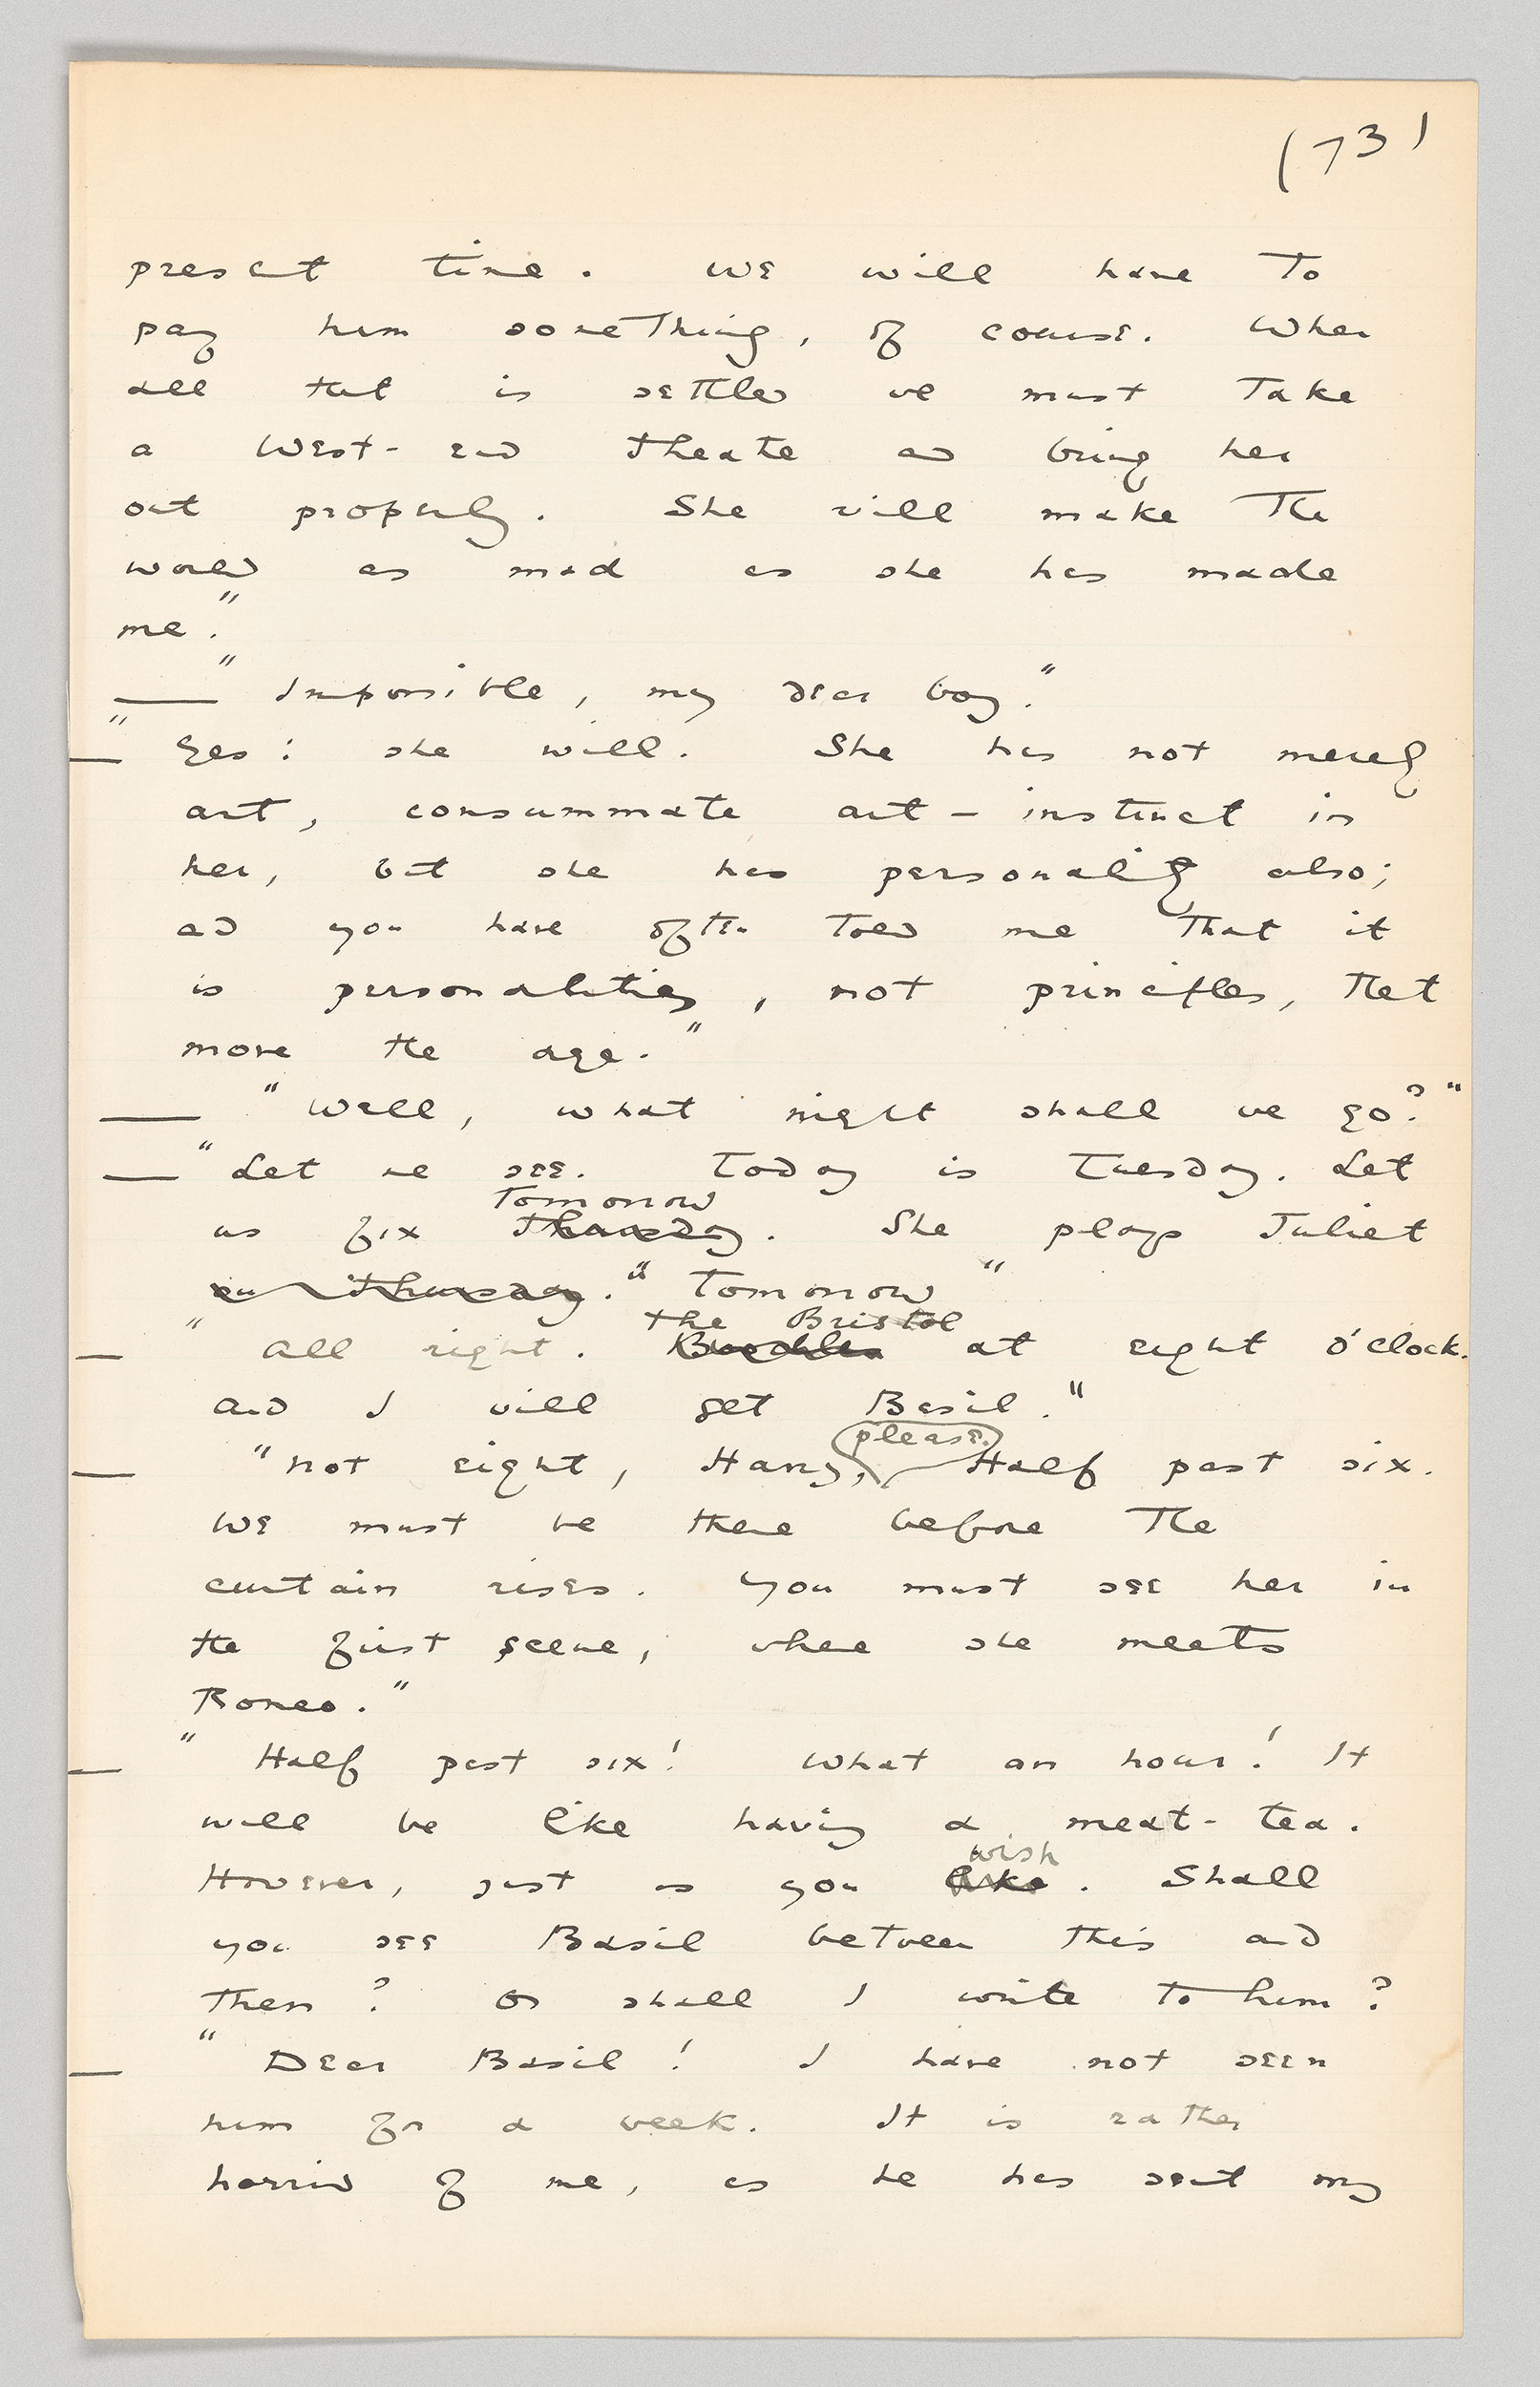 (73)
present time. We will have to
pay him something, of course. When
all that is settled we must take
a West-end theatre and bring her
out properly. She will make the
world as mad as she has made
me."
— "Impossible, my dear boy."
— "Yes: she will. She has not merely
art, consummate art-instinct in
her, but she has personality also;
and you have often told me that it
is personalities, not principles, that
move the age."
— "Well, what night shall we go?"
— "Let me see. Today is Tuesday. Let
Tomorrow
us fix Thursday. She plays Juliet
on Thursday." Tomorrow"
the Bristol
— "All right. at eight o'clock.
and I will get Basil."
please.
— "not eight, Harry, Half past six.
We must be there before the
curtain rises. You must see her in
the first scene, where she meets
Romeo."
— "Half past six! What an hour! It
will be like having a meat-tea.
wish
However, just as you like. Shall
you see Basil between this and
then? Or shall I write to him?
— "Dear Basil! I have not seen
him for a week. It is rather
horrid of me, as he has sent my